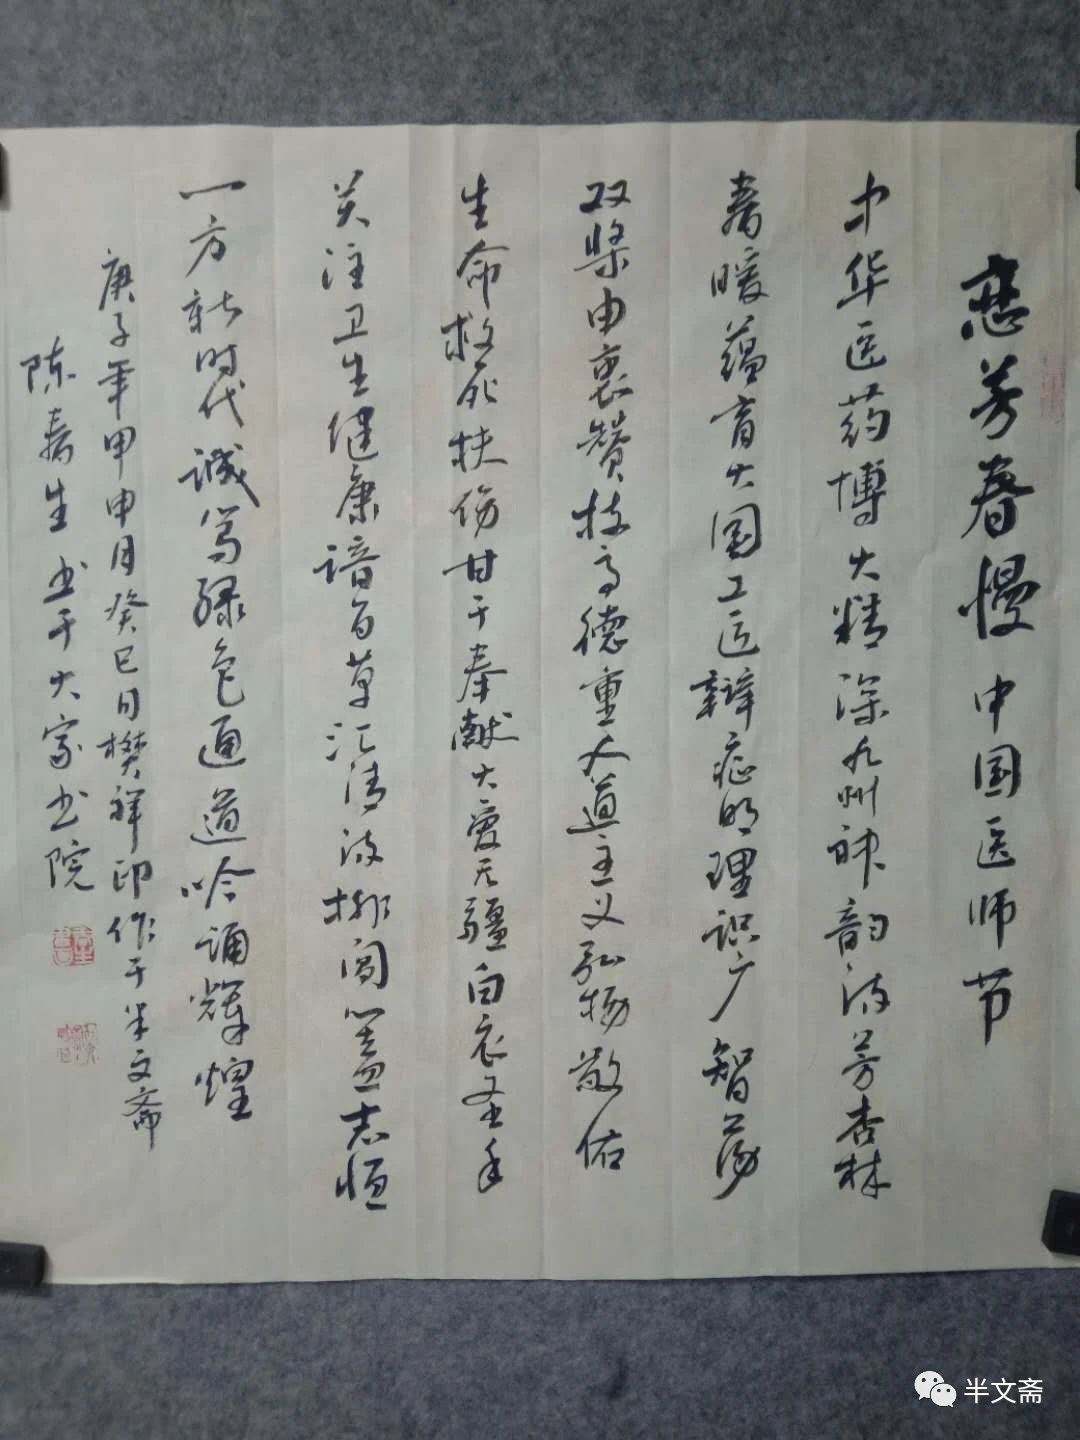 恋芳春慢 中国医师节
中华医药博大精深九州神韵流芳杏林
春暖蕴育大国工匠辩症明理识广智荡
双桨由衷赞技高德重人道主义弘扬敬佑
生命救死扶伤甘于奉献大爱无疆白衣圣手
关注卫生健康谙百草汇清流排阎盖志恒
一方新时代诚笃绿色通道吟诵辉煌
庚子年甲申月癸巳日樊祥印作于半文斋
陈春生书于大家书院
半文斋